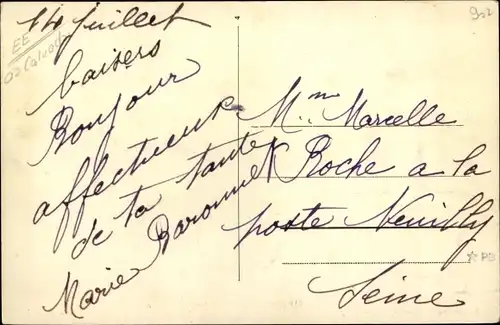 14 juillet
baisers
Bonjour
affectueux
de ta tante
Marie Baronnet
Mme Marcelle
Roche a la
poste Neuilly
Seine
EE
02 Calvados
902
PB